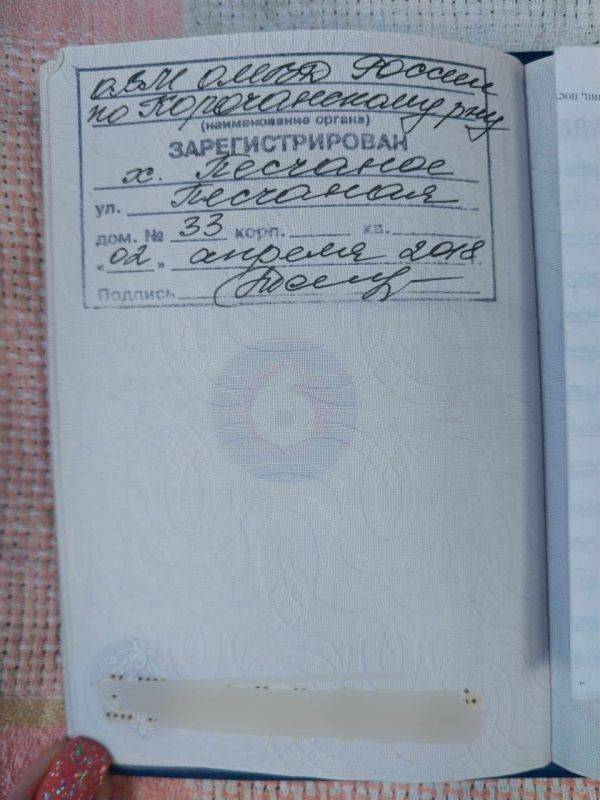 ОВМ ОМВД России
по Корочанскому р-ну
(наименование органа)
ЗАРЕГИСТРИРОВАН
х. Песчаное
ул. Песчаная
дом. № 33 корп. кв.
"02" апреля 2018
Подпись